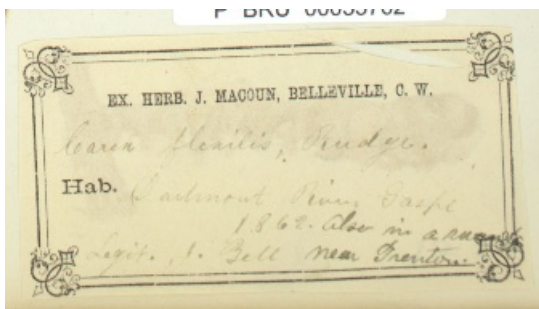 EX. HERB. J. MACOUN, BELLEVILLE, C. W.
Carex flexilis, Rudge.
Hab. Dartmouth River Gaspé
1862. Also in a
Legit. J. Bell near Trenton.